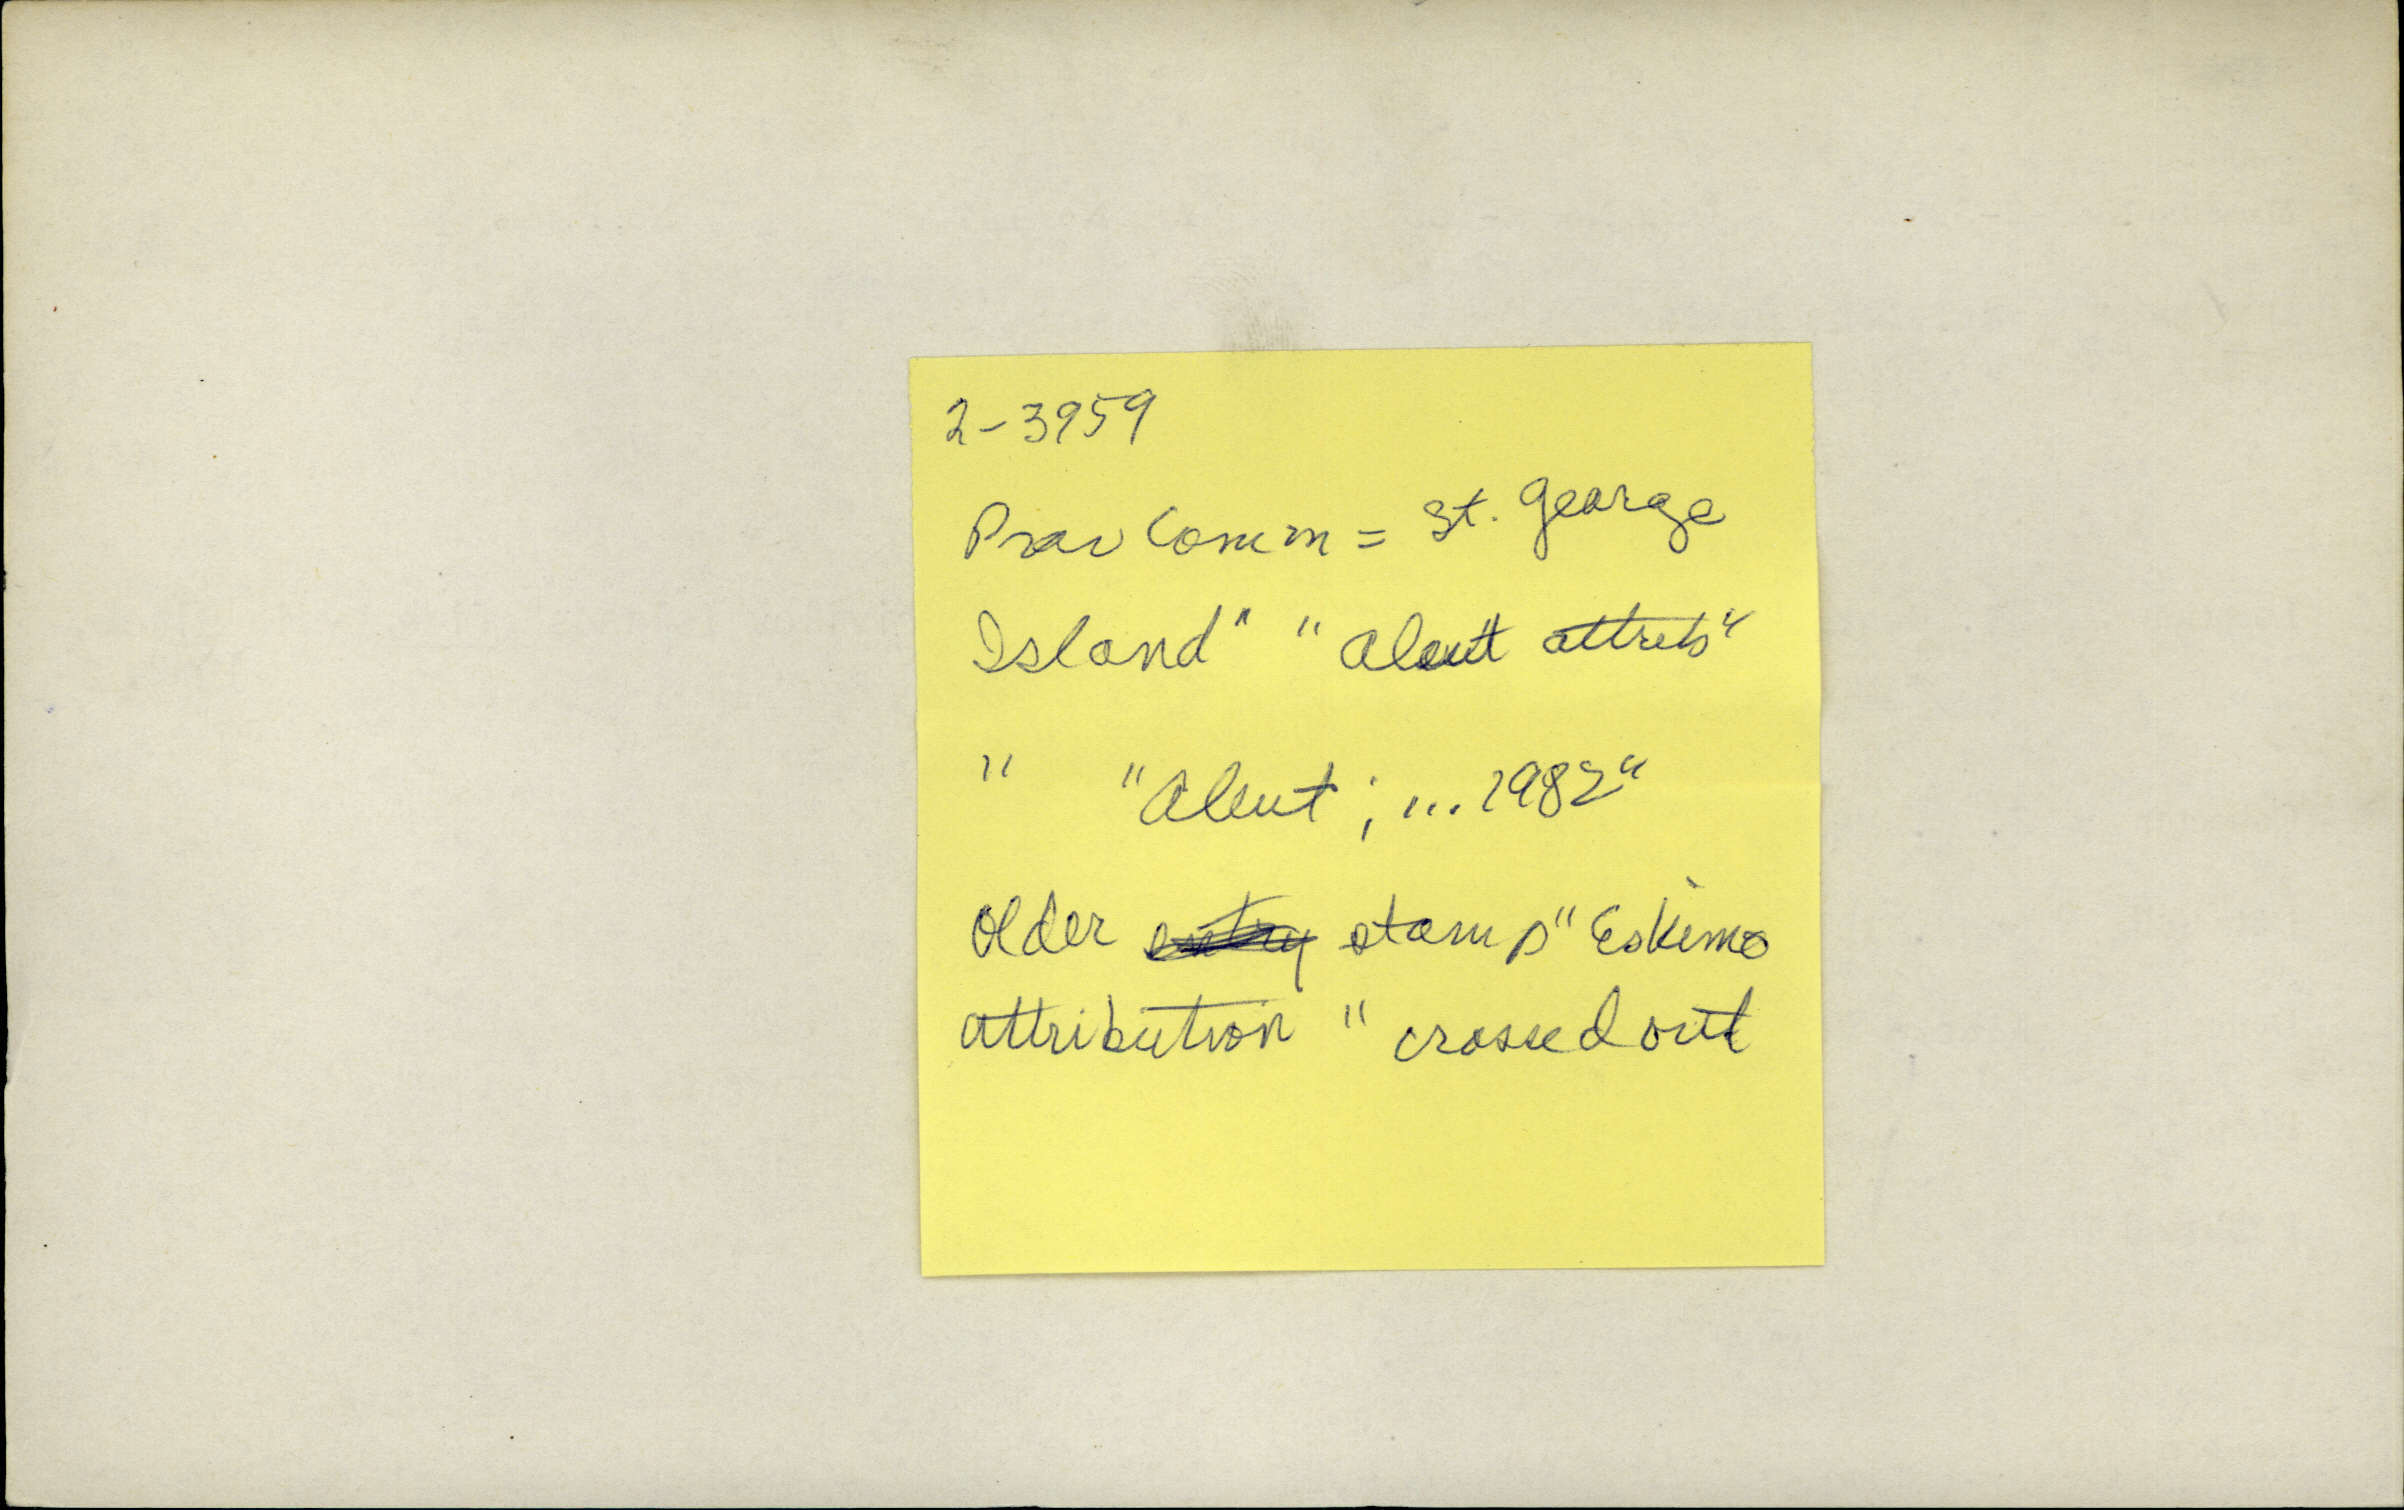 2-3959
Prov Comm = St. George
Island" "Aleut attrib"
" "Aleut; ... 1982"
Older entry stamp "Eskimo
attribution" crossed out